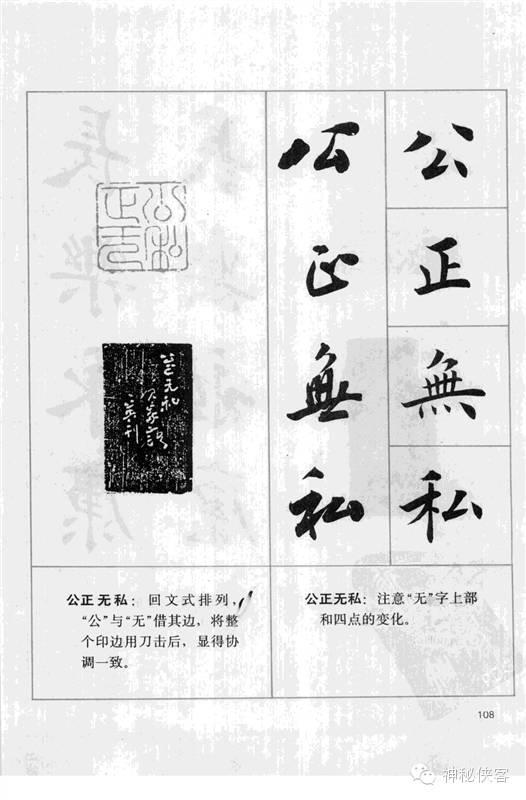 公
正
無
私
公
正
無
私
公正无私
公正无私：回文式排列，
“公”与“无”借其边，将整
个印边用刀击后，显得协
调一致。
公正无私：注意“无”字上部
和四点的变化。
108
神秘侠客